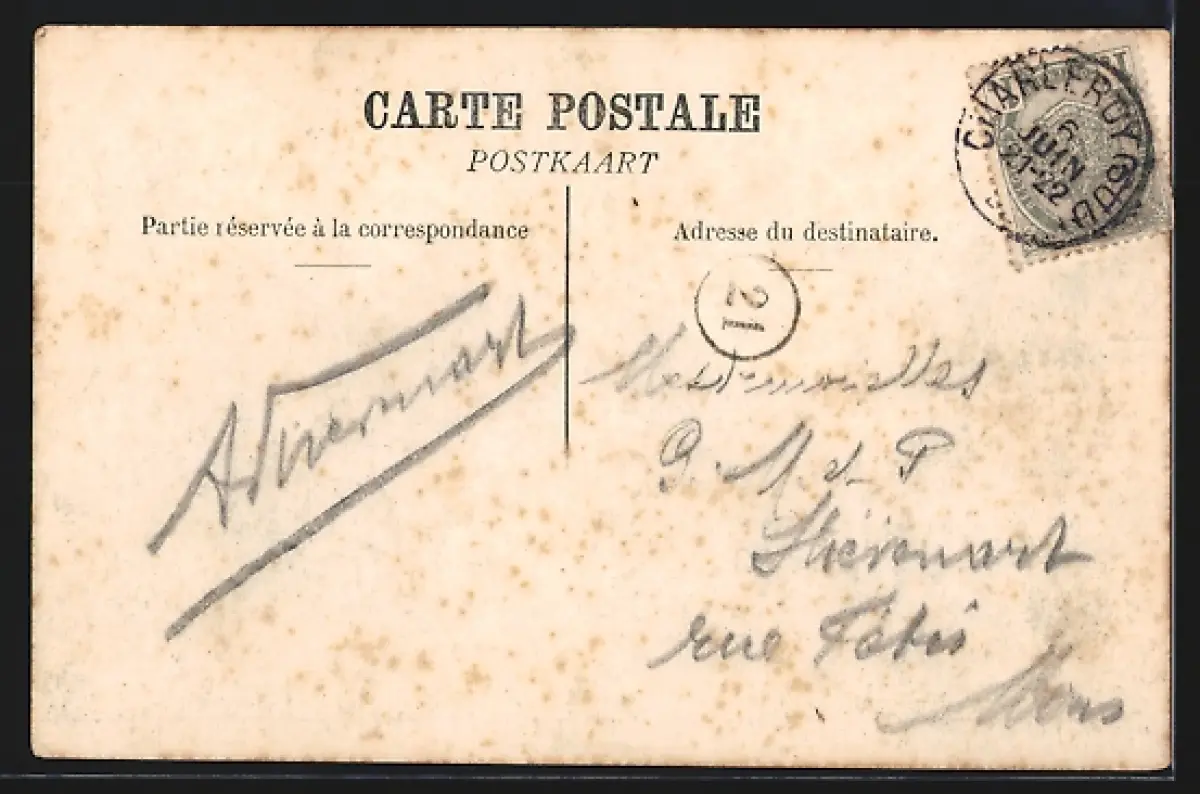 CARTE POSTALE
POSTKAART
Partie réservée à la correspondance
Adresse du destinataire.
CHARLEROY (SUD)
6
JUIN
21-22
21
Mesdemoiselles
G. M. et P
rue Fétis
Mons